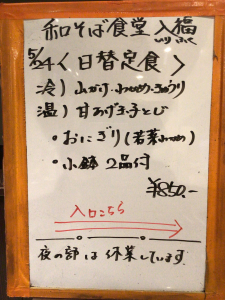 和そば食堂 入福
いり ふく
5/24〈日替定食〉
冷）山かけ・わかめ・きゅうり
温）甘あげ玉子とじ
・おにぎり(若菜わかめ)
・小鉢 2品付
¥850.-
入口こちら
夜の部は休業しています。